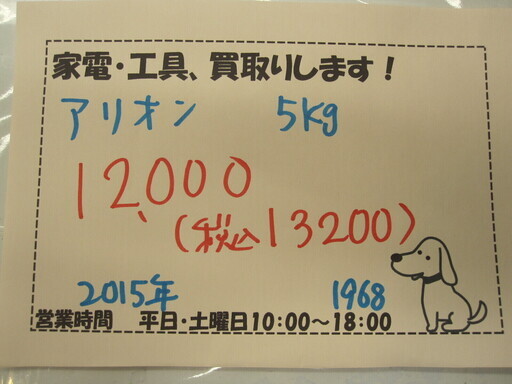 家電・工具、買取りします！
アリオン 5Kg
12,000
(税込13200)
2015年 1968
営業時間 平日・土曜日10:00～18:00